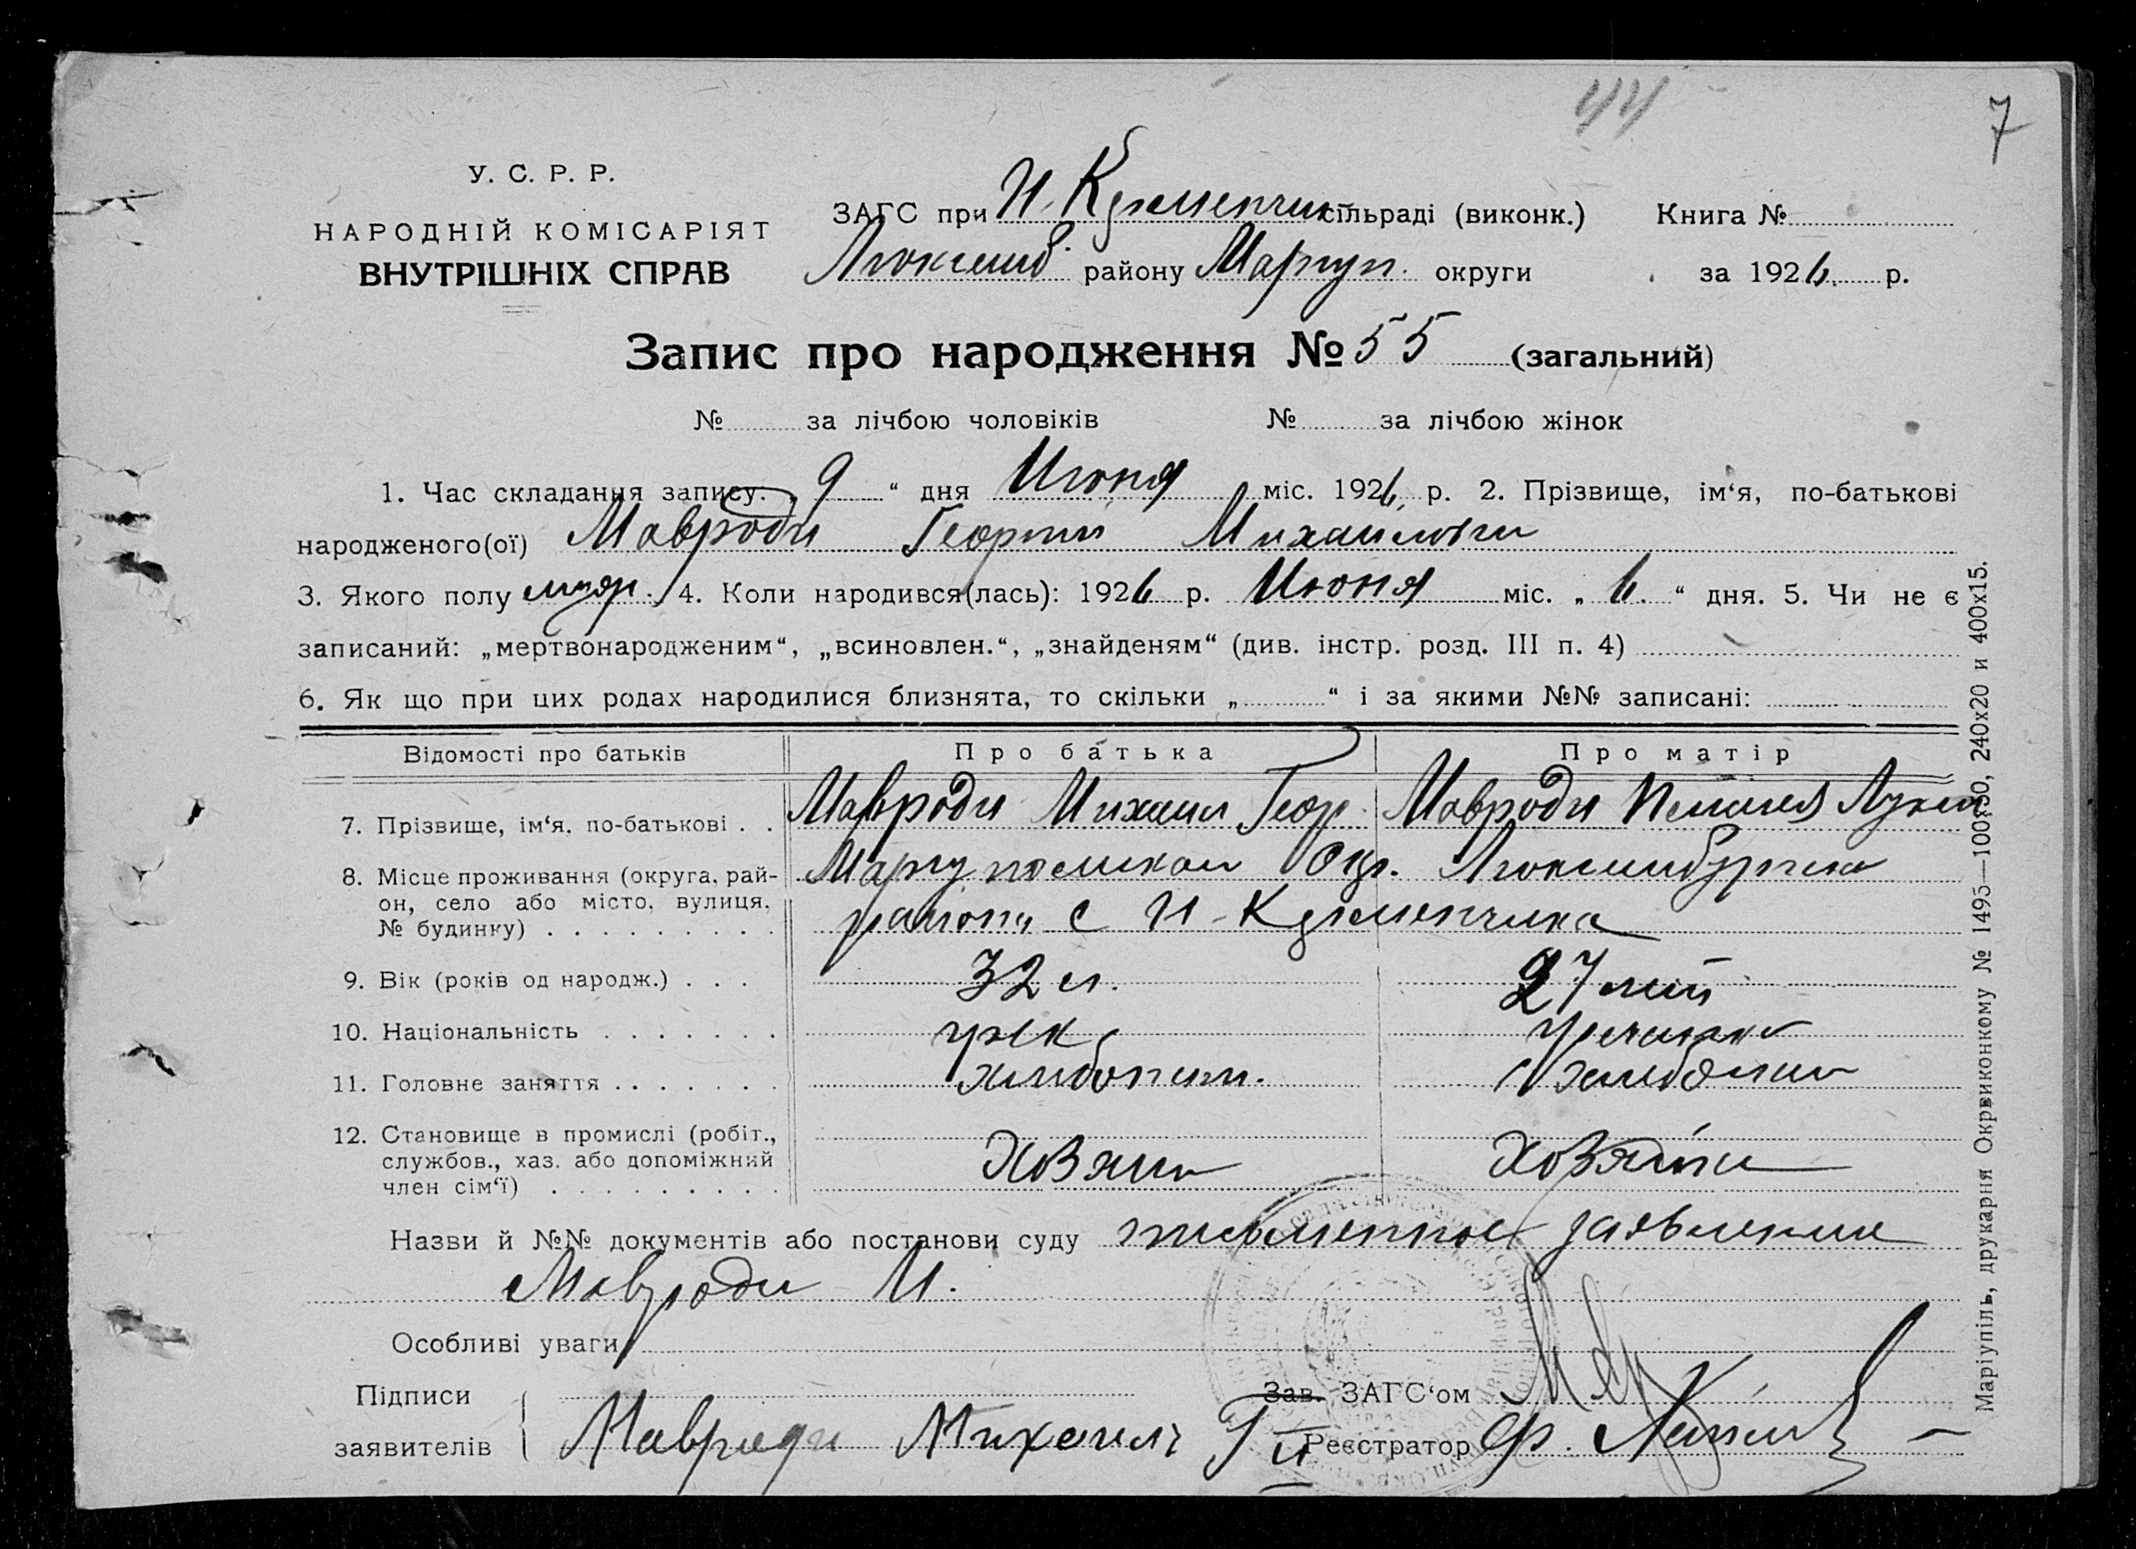 44
7
У. С. Р. Р.
НАРОДНІЙ КОМІСАРІЯТ
ВНУТРІШНІХ СПРАВ
ЗАГС при Н. Кременчик сільраді (виконк.) Книга №
Люксемб. району Мариуп. округи за 1926. р.
Запис про народження № 55 (загальний)
№ за лічбою чоловіків № за лічбою жінок
1. Час складання запису: „ 9 “ дня Июня міс. 1926 р. 2. Прізвище, ім‘я, по-батькові
народженого(ої) Мавроди Георгий Михайлович
3. Якого полу муж. 4. Коли народився(лась): 1926 р. Июня міс. „ 6. “ дня. 5. Чи не є
записаний: „мертвонародженим“, „всиновлен.“, „знайденям“ (див. інстр. розд. III п. 4)
6. Як що при цих родах народилися близнята, то скільки „ “ і за якими №№ записані:
Відомості про батьків Про батька Про матір
7. Прізвище, ім‘я, по-батькові . . Мавроди Михаил Геор. Мавроди
8. Місце проживання (округа, рай-
он, село або місто, вулиця,
№ будинку) . . . . . . . . .
Мариупольской Окр. Люксембургска
района с Н-Кременчика
9. Вік (років од народж.) . . . 32 л. 27 лет
10. Національність . . . . . . . грек гречанка
11. Головне заняття . . . . . . . хлебопаш.
12. Становище в промислі (робіт.,
службов., хаз. або допоміжний
член сім‘ї) . . . . . . . . .
Хозяин Хозяйка
Назви й №№ документів або постанови суду письменное заявление
Мавроди М.
Особливі уваги
Підписи
заявителів
Мавроди Михаил
Зав. ЗАГС‘ом
Реєстратор
Маріупіль, друкарня Окрвиконкому № 1495—100×50, 240х20 и 400х15.